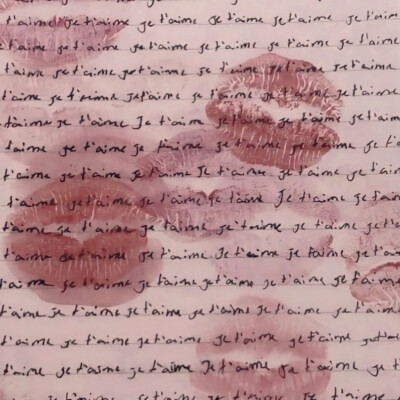 t'aime je t'aime je t'aime je t'aime je t'aime
t'aime je t'aime je t'aime je t'aime je t'aime
t'aime je t'aime je t'aime je t'aime je t'aime je t'aime
t'aime je t'aime je t'aime je t'aime je t'aime je t'aime
t'aime je t'aime Je t'aime je t'aime je t'aime je t'aime
t'aime je t'aime je t'aime je t'aime je t'aime je
t'aime je t'aime je t'aime Je t'aime je t'aime je t'aim
t'aime je t'aime je t'aime je t'aime Je t'aime je
t'aime je t'aime je t'aime je t'aime je t'aime je t'aime
t'aime je t'aime je t'aime Je t'aime Je t'aime je t'a
t'aime je t'aime je t'aime je t'aime je t'aime je t'aime
t'aime je t'aime je t'aime je t'aime je t'aime je t'aime
t'aime je t'aime je t'aime je t'aime je t'aime je t'aime
t'aime je t'aime je t'aime Je t'aime je t'aime je t'aime
je t'aime je t'aime je t'aime Je t'aime